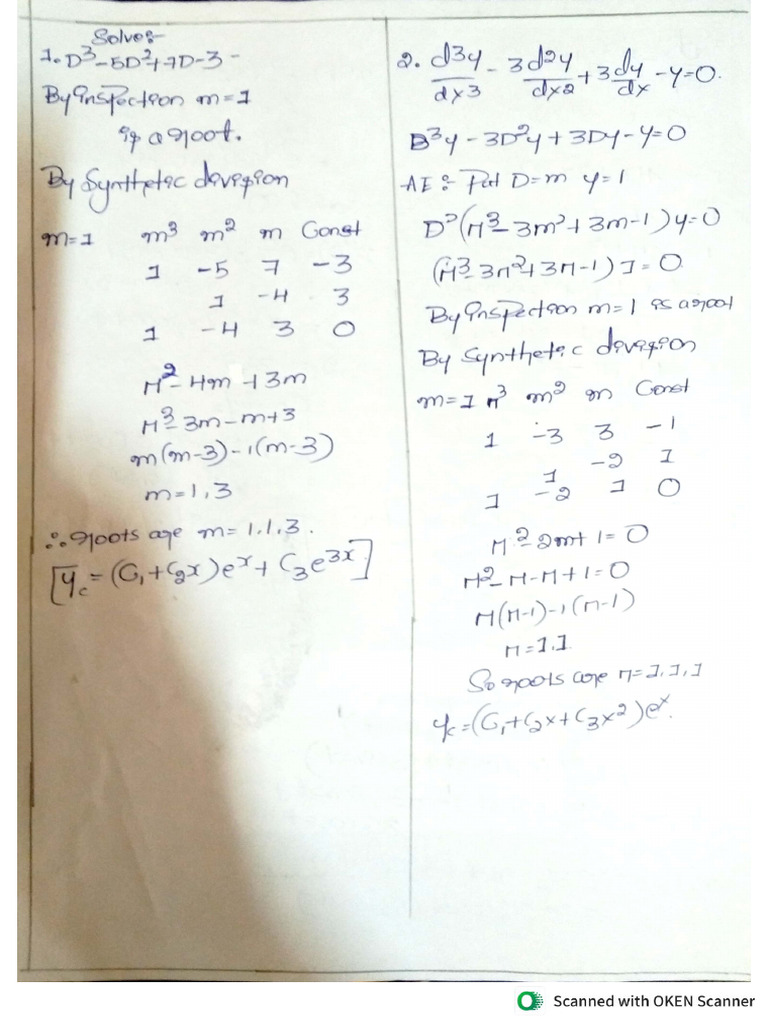 Solve:-
1. D³-5D²+7D-3 -
By inspection m=1
is a root.
By Synthetic devision
m=1 m³ m² m Const
1 -5 7 -3
1 -4 3
1 -4 3 0
M²-4m+3m
M³-3m-m+3
m(m-3)-1(m-3)
m=1,3
∴ roots are m=1,1,3.
[y_c=(C₁+C₂x)e^x+C₃e^3x]
2. d3y/dx3 - 3d2y/dx2 + 3dy/dx - y=0.
D³y-3D²y+3Dy-y=0
AE:- Put D=m y=1
D³(M³-3m²+3m-1)y=0
(M³-3M²+3M-1)1=0
By inspection m=1 is a root
By Synthetic devision
m=1 M³ m² m Const
1 -3 3 -1
1 -2 1
1 -2 1 0
M²-2m+1=0
M²-M-M+1=0
M(M-1)-1(M-1)
M=1,1.
So roots are M=1,1,1
y_c=(C₁+C₂x+C₃x²)e^x.
Scanned with OKEN Scanner